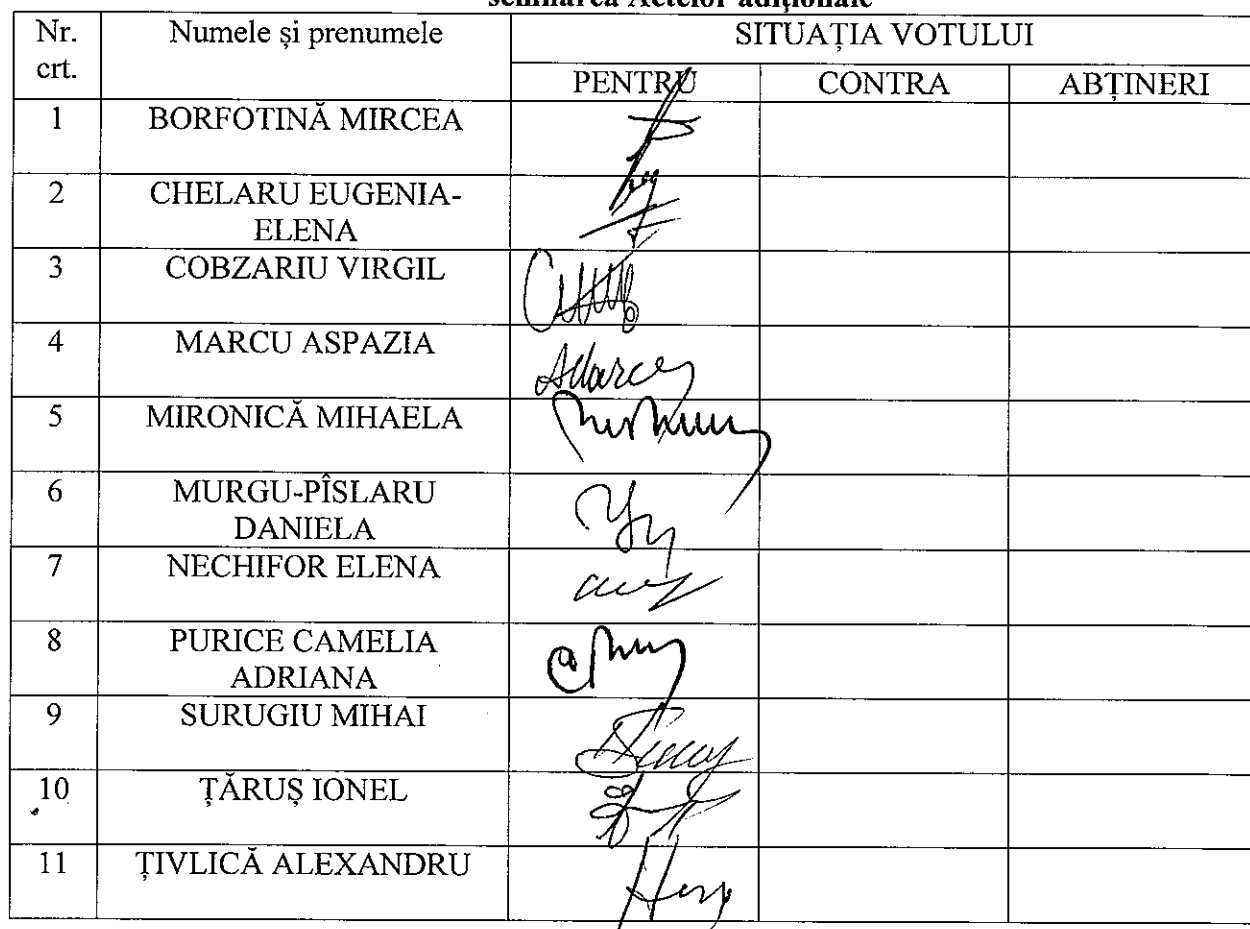 semnarea Actelor adiționale
Nr. crt. Numele și prenumele SITUAȚIA VOTULUI
PENTRU CONTRA ABȚINERI
1 BORFOTINĂ MIRCEA
2 CHELARU EUGENIA-
ELENA
3 COBZARIU VIRGIL
4 MARCU ASPAZIA
AMarcu
5 MIRONICĂ MIHAELA
6 MURGU-PÎSLARU
DANIELA
7 NECHIFOR ELENA
8 PURICE CAMELIA
ADRIANA
9 SURUGIU MIHAI
10 ȚĂRUȘ IONEL
11 ȚIVLICĂ ALEXANDRU